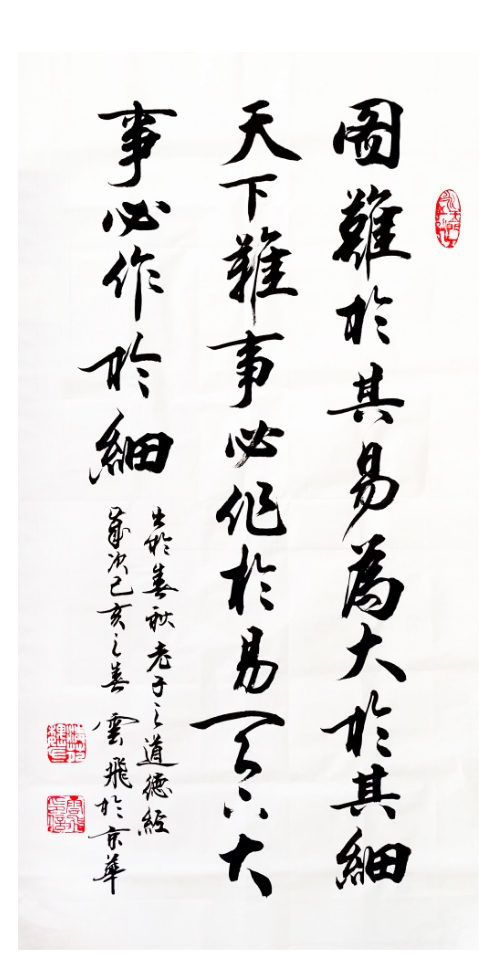 圖難於其易為大於其細
天下難事必作於易天下大
事必作於細
出於春秋老子之道德經
歲次己亥之春雲飛於京華